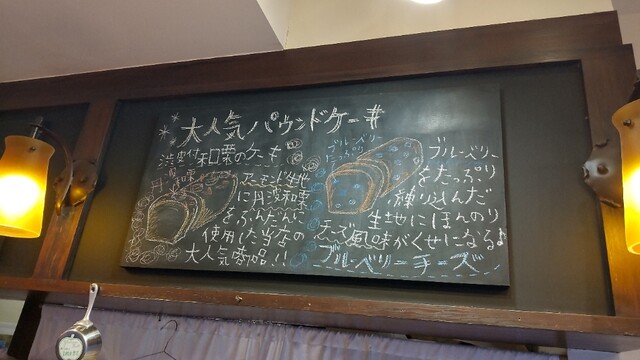 大人気パウンドケーキ
渋皮付和栗のケーキ
丹波和栗
アーモンド生地
に丹波和栗
をふんだんに
使用した当店の
大人気商品!!
ブルーベリー
たっぷり
ブルーベリー
をたっぷり
練り込んだ
生地にほんのり
チーズ風味がくせになる♪
ブルーベリーチーズ